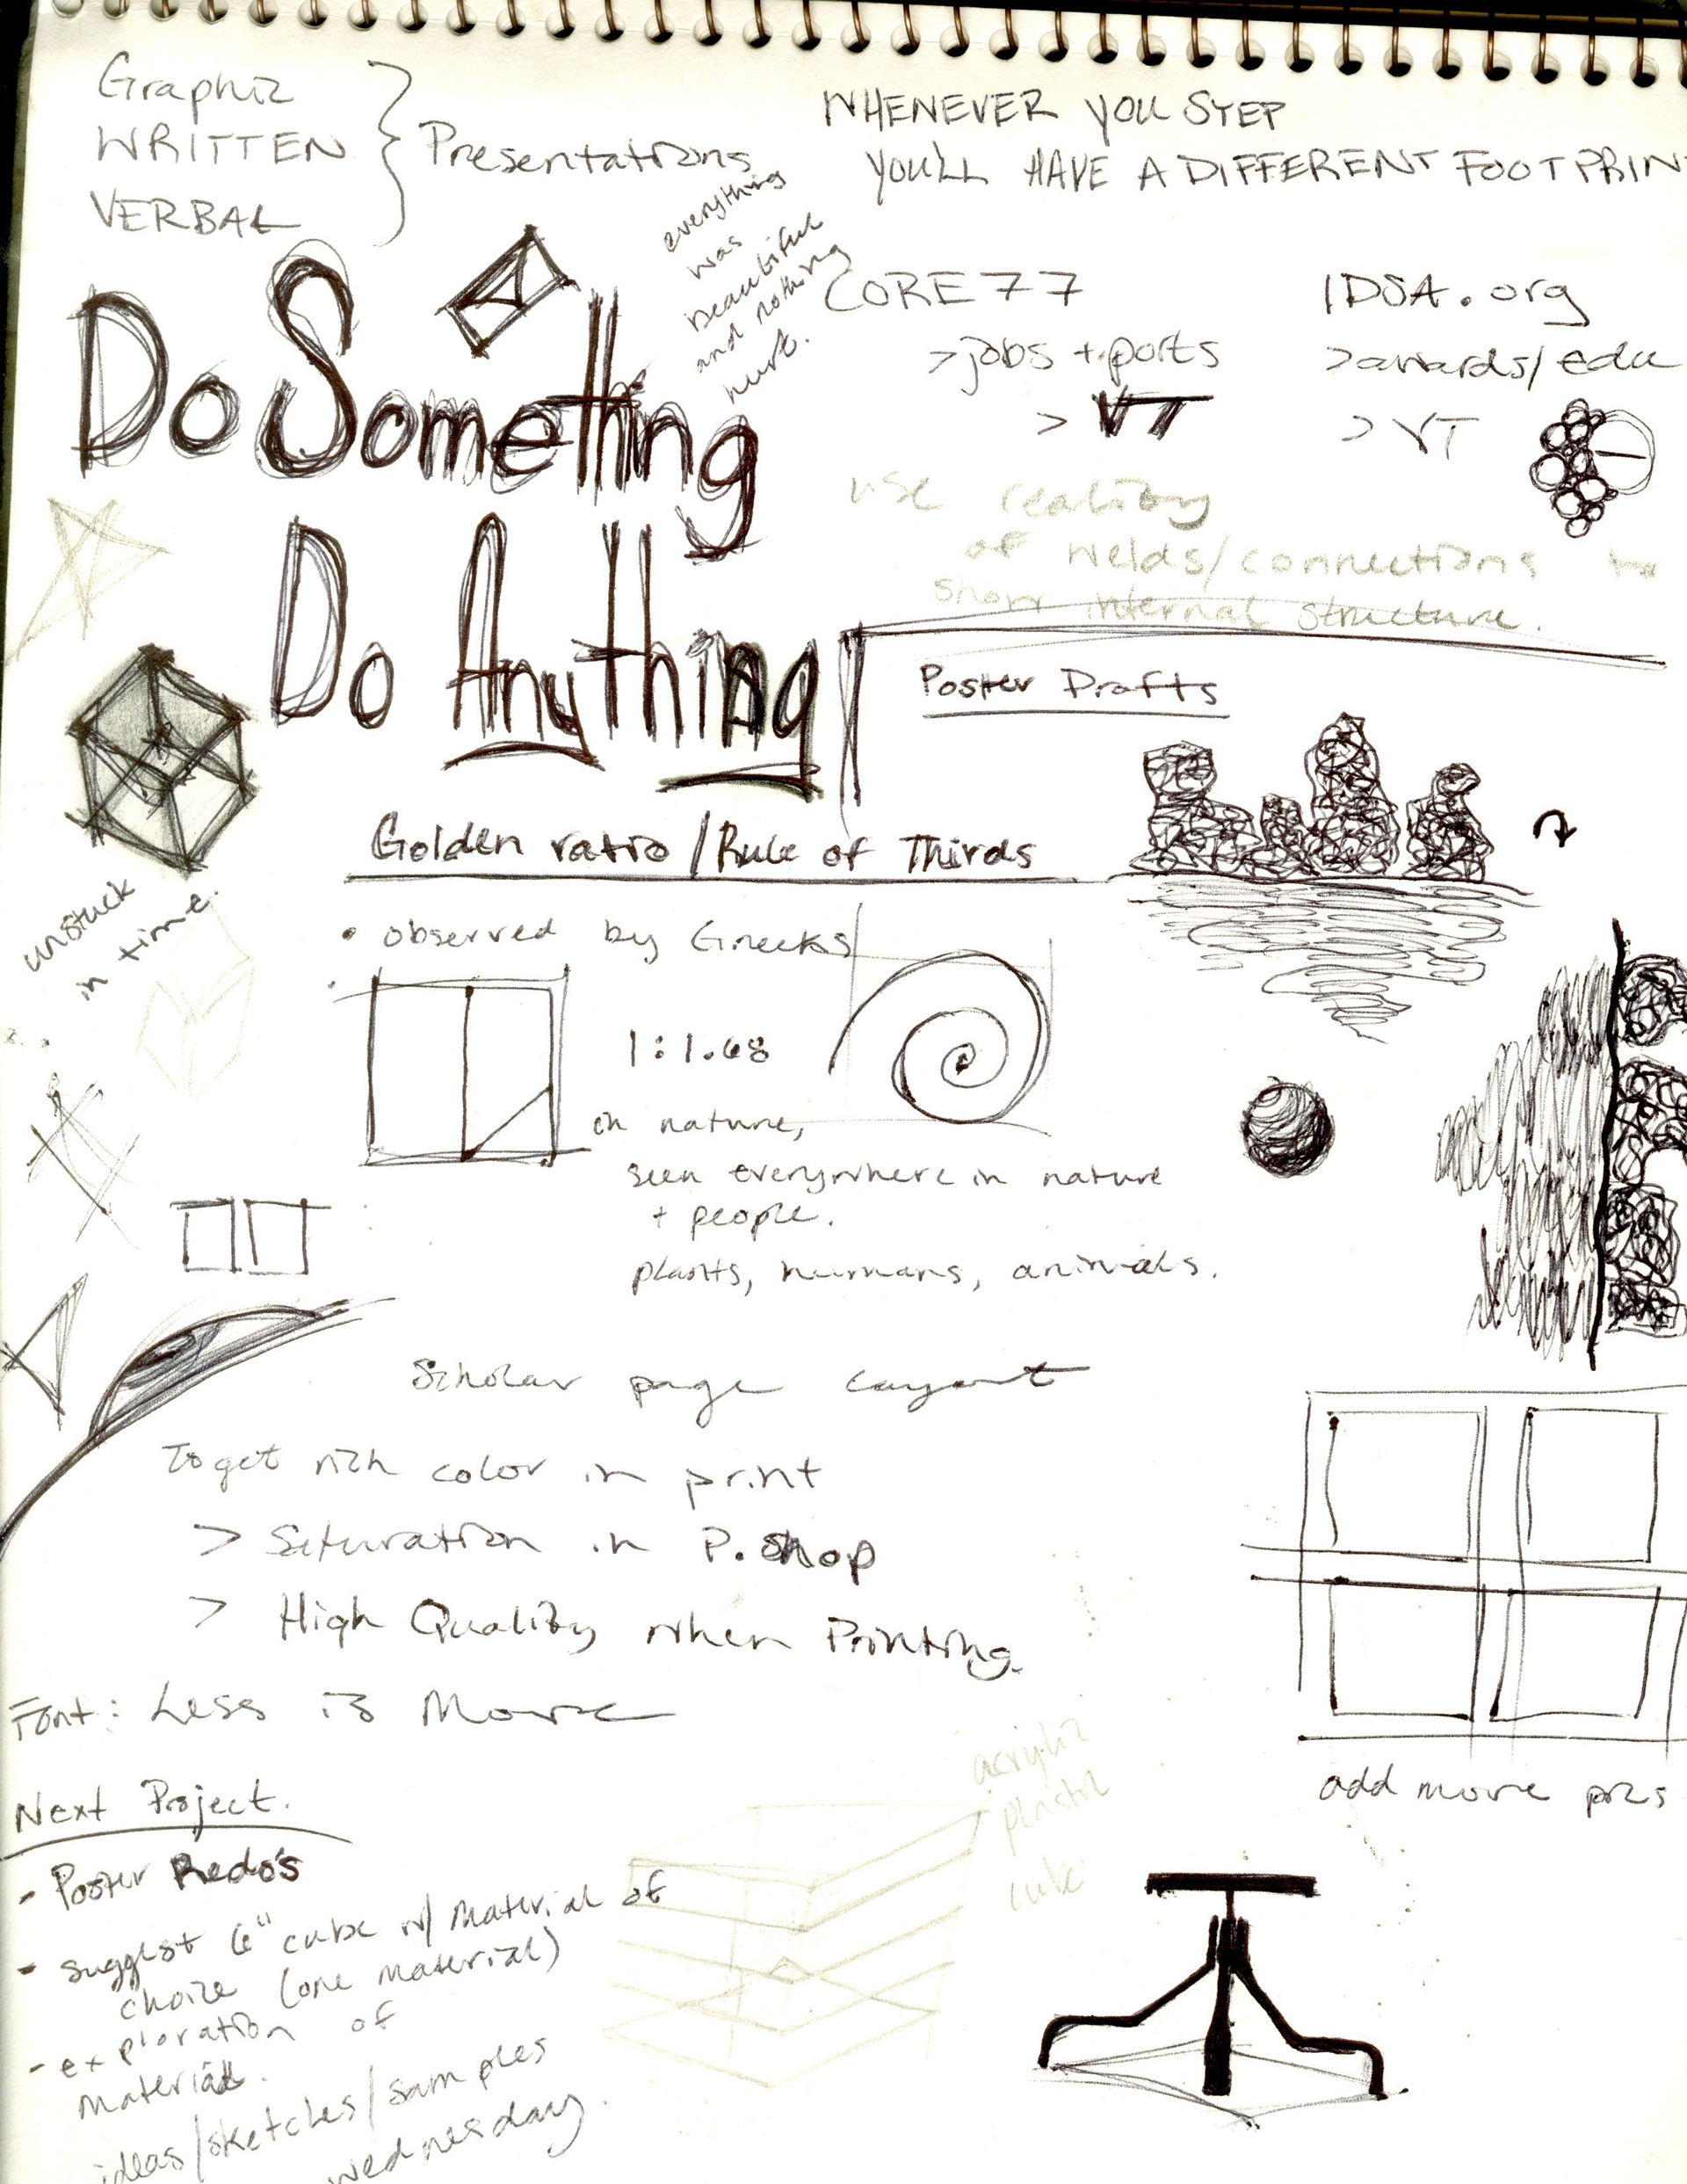 Graphic
WRITTEN
VERBAL
Presentations
WHENEVER YOU STEP
YOU'LL HAVE A DIFFERENT FOOTPRIN
everything
was
beautiful
and nothing
hurt.
CORE77
>jobs + ports
> VT
IDSA.org
>awards/edu
> VT
Do Something
Do Anything
use reality
of welds/connections to
show internal structure.
Poster Drafts
unstuck
in time.
Golden ratio/Rule of Thirds
• observed by Greeks
1:1.68
in nature,
seen everywhere in nature
+ people.
plants, humans, animals.
Scholar page layout
To get rich color in print
> Saturation in P.shop
> High Quality when Printing.
Font: Less is More
add more pics
acrylic
plastic
cube
Next Project.
- Poster Redo's
- suggest 6" cube w/ material of
choice (one material)
- exploration of
material.
ideas/sketches/samples
wednesday.